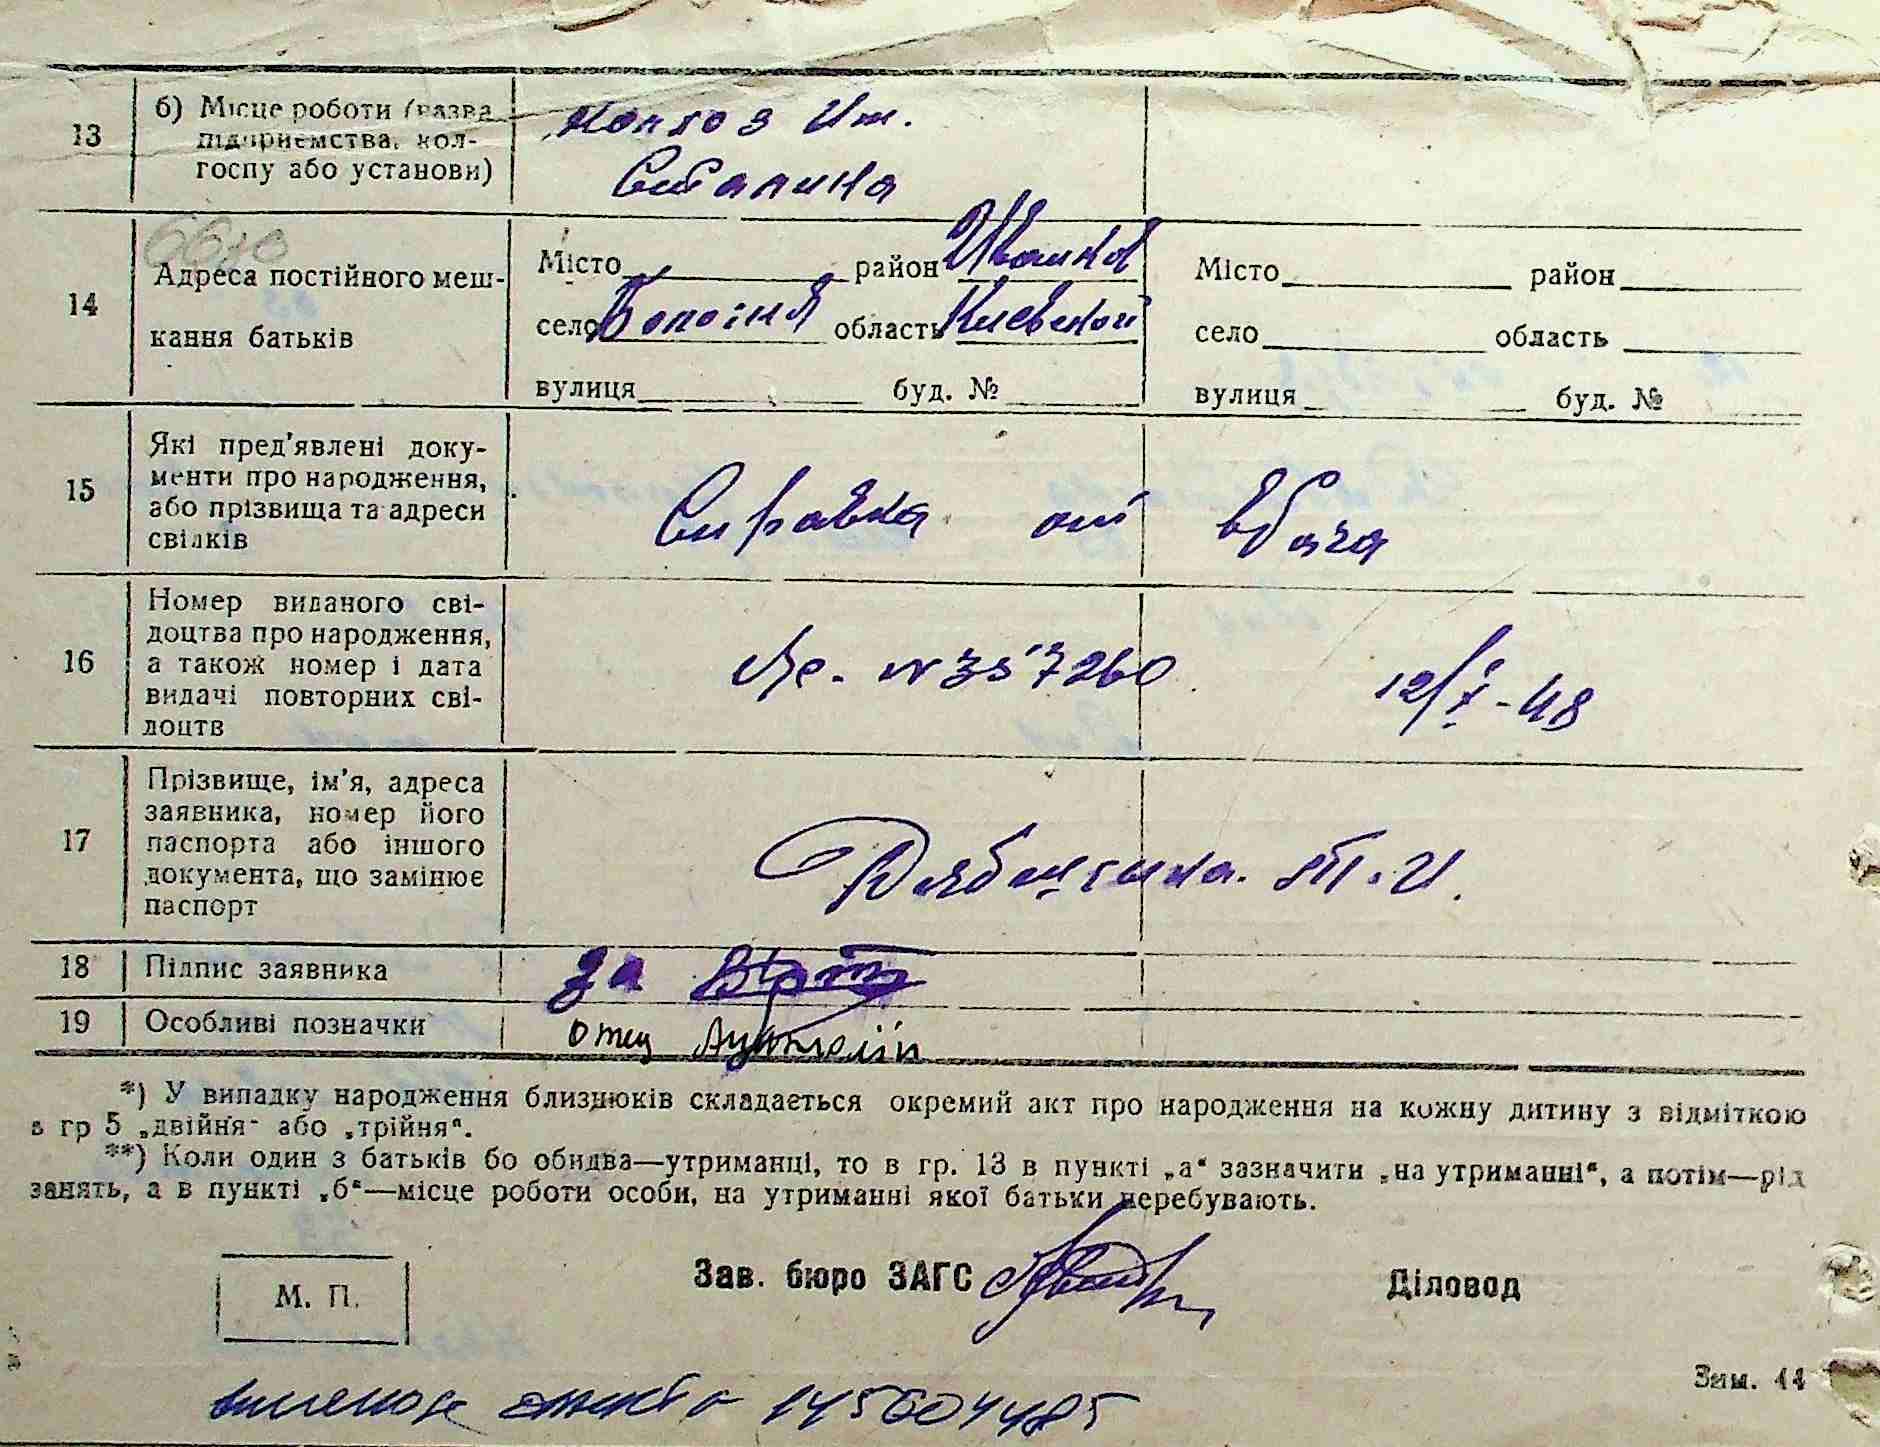 13
б) Місце роботи (назва підприємства, колгоспу або установи)
колхоз Им.
Сталина
6610
14
Адреса постійного мешкання батьків
Місто район Иванків
село область Киевской
вулиця буд. №
Місто район
село область
вулиця буд. №
15
Які пред'явлені документи про народження, або прізвища та адреси свідків
Справка от врача
16
Номер виданого свідоцтва про народження, а також номер і дата видачі повторних свідоцтв
№ 357260
12/X-48
17
Прізвище, ім'я, адреса заявника, номер його паспорта або іншого документа, що замінює паспорт
Т. И.
18
Підпис заявника
за
19
Особливі позначки
отец
*) У випадку народження близнюків складається окремий акт про народження на кожну дитину з відміткою
в гр 5 „двійня" або „трійня".
**) Коли один з батьків бо обидва—утриманці, то в гр. 13 в пункті „а" зазначити „на утриманні", а потім—рід
занять, а в пункті „б"—місце роботи особи, на утриманні якої батьки перебувають.
М. П.
Зав. бюро ЗАГС
Діловод
Зам. 44
145604485